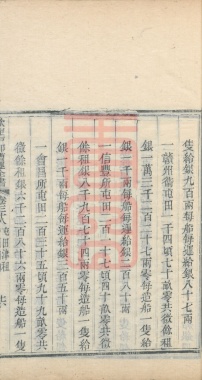 隻給銀九百兩每船每運給銀二百八十兩
一贛州衞屯田一千四頃七十畝零共徵餘租
銀一萬二千一百二十七兩零每造船一隻給
銀一千兩每船每運給銀二百八十二兩
一信豐所屯田一百二十七頃四十畝零共徵
餘租銀八千九百七十四兩零每造船一隻給
銀一千兩每船每運給銀二百五十兩
一會昌所屯田二百三十五頃九十九畝零共
徵餘租六千二百八十六兩零每造船一隻
屯田津租